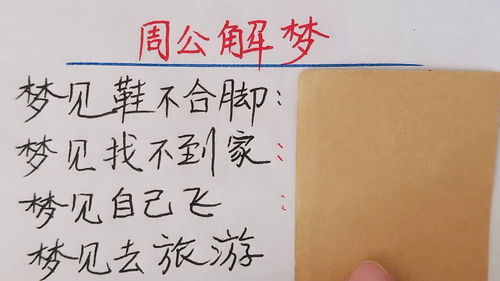 周公解梦
梦见鞋不合脚：
梦见找不到家：
梦见自己飞：
梦见去旅游